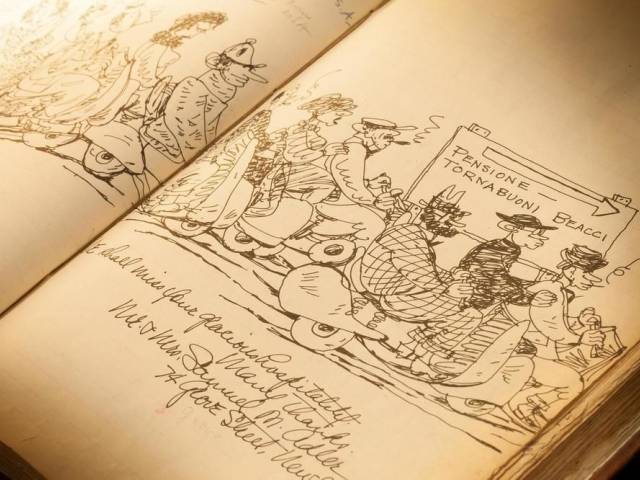 PENSIONE —
TORNABUONI BEACCI
I shall miss your gracious hospitality
Many thanks,
Mr & Mrs. Samuel M. Adler
Street, New